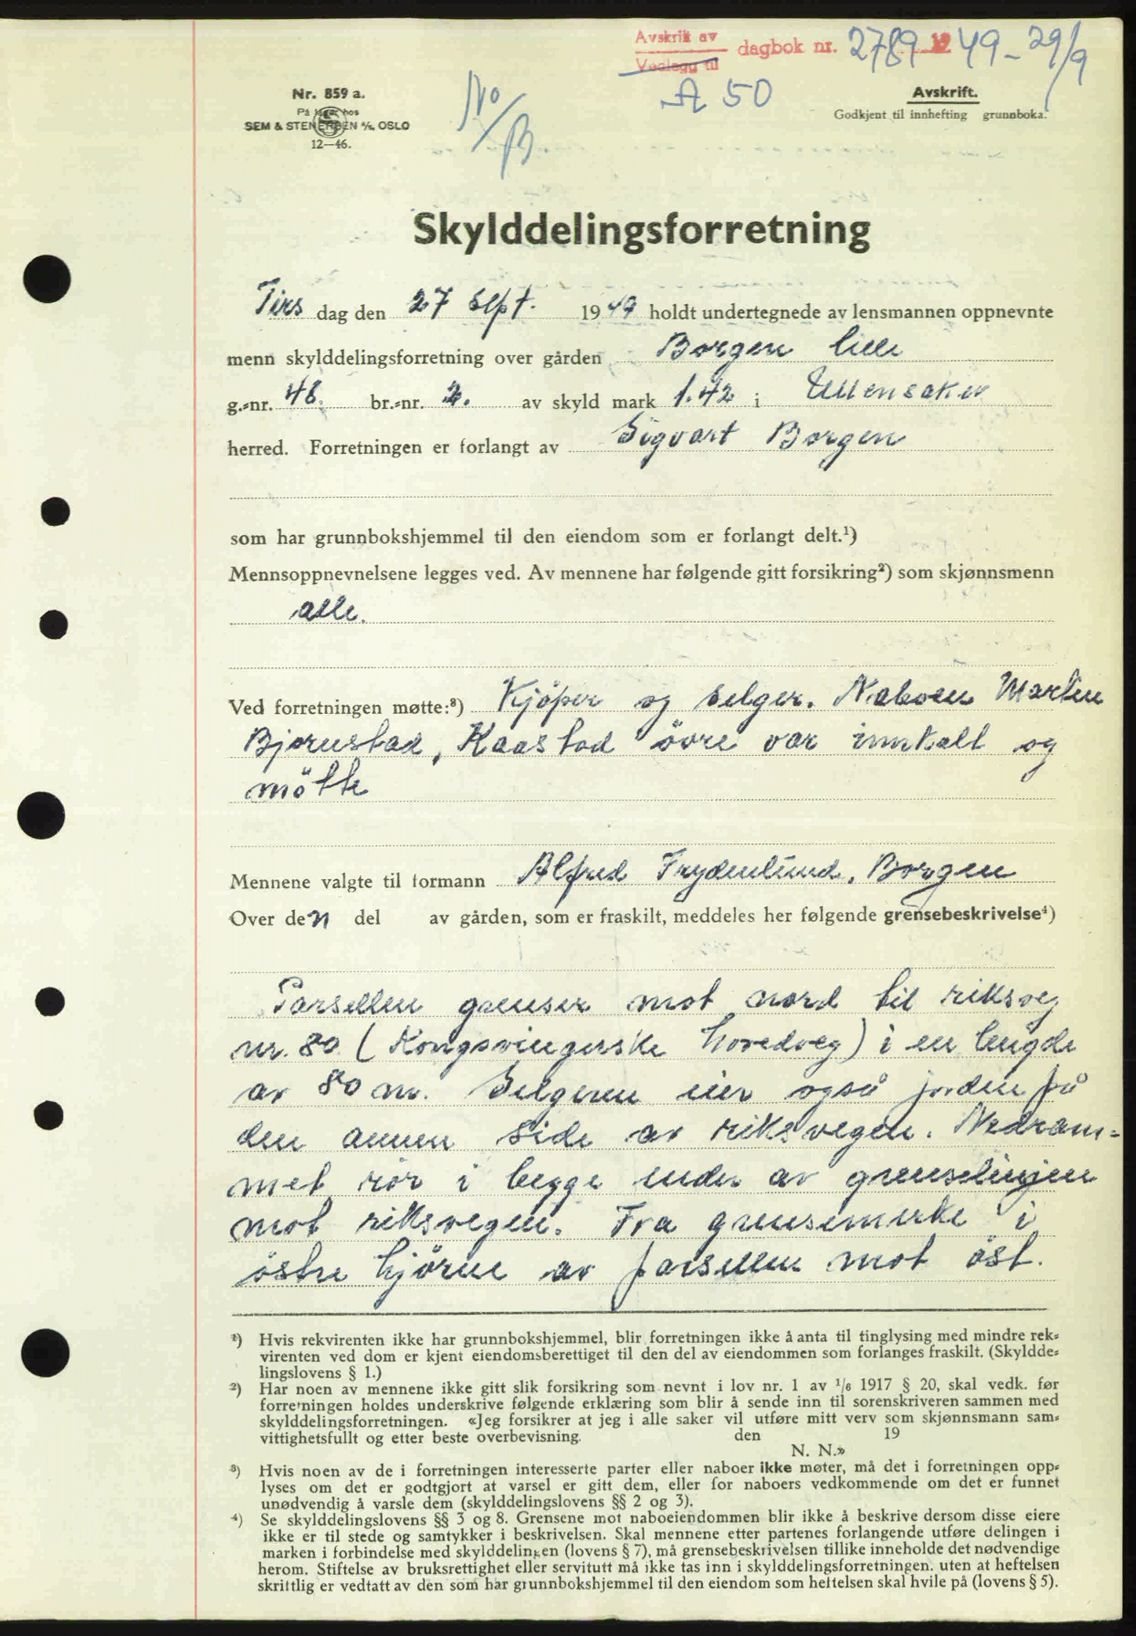 Avskrift av
Vedlegg til
dagbok nr. 2789 1949 - 29/9
A 50
No/B
Nr. 859 a.
På lager hos
SEM & STENERSEN A/S, OSLO
12—46.
Avskrift.
Godkjent til innhefting grunnboka.
Skylddelingsforretning
Tirs dag den 27 Sept. 1949 holdt undertegnede av lensmannen oppnevnte
menn skylddelingsforretning over gården Borgen lille
g.-nr. 48. br.-nr. 2. av skyld mark 1.42 i Ullensaker
herred. Forretningen er forlangt av Sigvart Borgen
som har grunnbokshjemmel til den eiendom som er forlangt delt.¹)
Mennsoppnevnelsene legges ved. Av mennene har følgende gitt forsikring²) som skjønnsmenn
alle.
Ved forretningen møtte:³) Kjöper og selger. Naboen Martin
Bjørnstad, Kaastad övre var innkalt og
mötte
Mennene valgte til formann Alfred Frydenlund, Borgen
Over den del av gården, som er fraskilt, meddeles her følgende grensebeskrivelse⁴)
Parsellen grenser mot nord til riksveg
nr. 80 (Kongsvingerske hovedveg) i en lengde
av 80 m. Selgeren eier også jorden på
den annen side av riksvegen. Nedram-
met rör i begge ender av grenselinjen
mot riksvegen. Fra grensemerke i
östre hjörne av parsellen mot öst.
¹) Hvis rekvirenten ikke har grunnbokshjemmel, blir forretningen ikke å anta til tinglysing med mindre rek-
virenten ved dom er kjent eiendomsberettiget til den del av eiendommen som forlanges fraskilt. (Skyldde-
lingslovens § 1.)
²) Har noen av mennene ikke gitt slik forsikring som nevnt i lov nr. 1 av ¹/₆ 1917 § 20, skal vedk. før
forretningen holdes underskrive følgende erklæring som blir å sende inn til sorenskriveren sammen med
skylddelingsforretningen. «Jeg forsikrer at jeg i alle saker vil utføre mitt verv som skjønnsmann sam-
vittighetsfullt og etter beste overbevisning. den 19
N. N.»
³) Hvis noen av de i forretningen interesserte parter eller naboer ikke møter, må det i forretningen opp-
lyses om det er godtgjort at varsel er gitt dem, eller for naboers vedkommende om det er funnet
unødvendig å varsle dem (skylddelingslovens §§ 2 og 3).
⁴) Se skylddelingslovens §§ 3 og 8. Grensene mot naboeiendommen blir ikke å beskrive dersom disse eiere
ikke er til stede og samtykker i beskrivelsen. Skal mennene etter partenes forlangende utføre delingen i
marken i forbindelse med skylddelingen (lovens § 7), må grensebeskrivelsen tillike inneholde det nødvendige
herom. Stiftelse av bruksrettighet eller servitutt må ikke tas inn i skylddelingsforretningen. uten at heftelsen
skriftlig er vedtatt av den som har grunnbokshjemmel til den eiendom som heftelsen skal hvile på (lovens § 5).